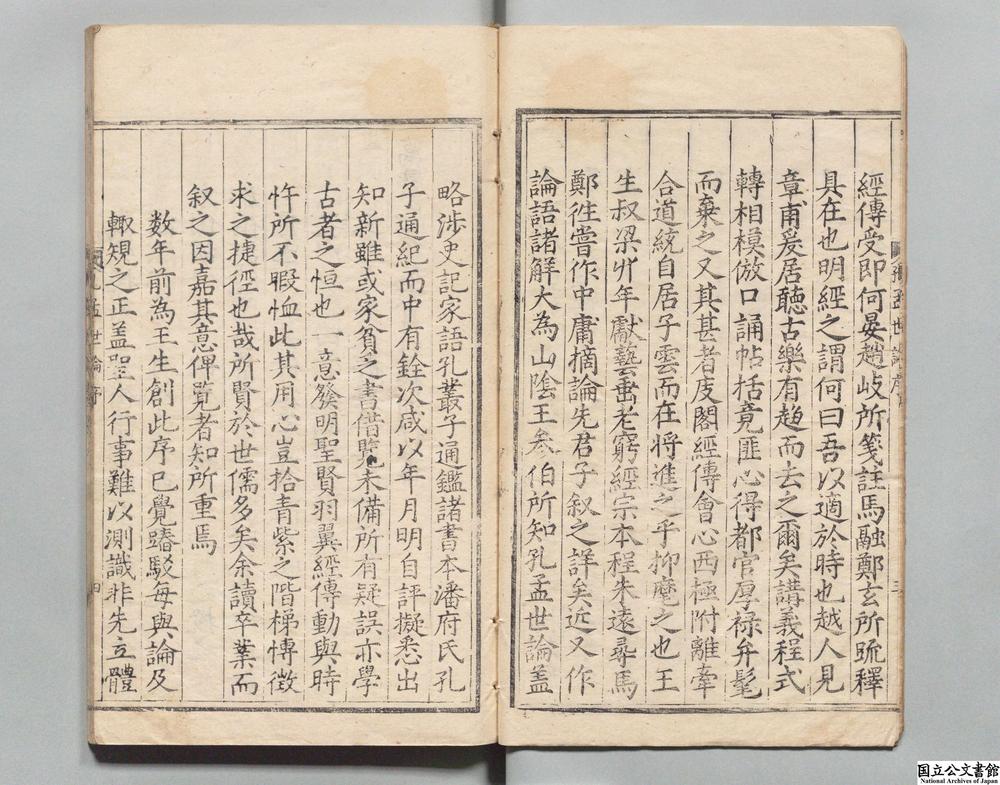 經傳受即何晏趙岐所箋註馬融鄭玄所䟽釋
具在也明經之謂何曰吾以適於時也越人見
章甫爰居聽古樂有趋而去之爾矣講義程式
轉相模倣口誦帖括竟匪心得都官厚禄弁髦
而棄之又其甚者庋閣經傳會心西極附離牽
合道統自居子雲而在将進之乎抑麾之也王
生叔梁丱年獻藝耑老窮經宗本程朱遠尋馬
鄭徃嘗作中庸摘論先君子叙之詳矣近又作
論語諸解大為山陰王叅伯所知孔孟世論盖
略涉史記家語孔叢子通鑑諸書本潘府氏孔
子通紀而中有銓次咸以年月明自評擬悉出
知新雖或家貧乏書借覽未備所有疑誤亦學
古者之恒也一意發明聖賢羽翼經傳動與時
忤所不暇恤此其用心豈拾青紫之階梯慱徴
求之捷徑也哉所賢於世儒多矣余讀卒業而
叙之因嘉其意俾覽者知所重焉
数年前為王生創此序已覺踳駁每與論及
輙規之正盖聖人行事難以測識非先立體
孔孟世論序
三
孔孟世論序
四
国立公文書館
National Archives of Japan